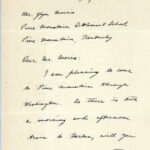 Mr Glyn Morris
Pine Mountain Settlement School
Pine Mountain, Kentucky
Dear Mr. Morris:
I am planning to come
to Pine Mountain through
Washington. As there is both
a morning and afternoon
train to Harlan, will you